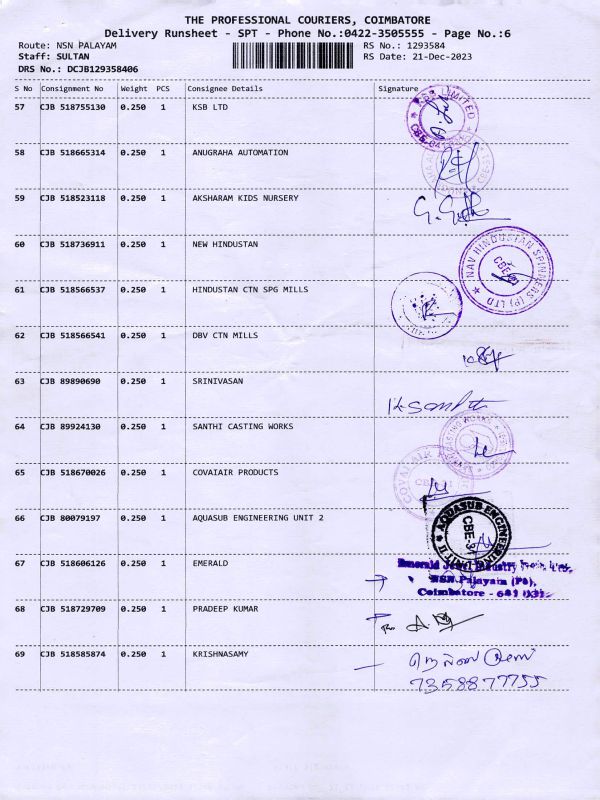 THE PROFESSIONAL COURIERS, COIMBATORE
Delivery Runsheet - SPT - Phone No.:0422-3505555 - Page No.:6
Route: NSN PALAYAM RS No.: 1293584
Staff: SULTAN RS Date: 21-Dec-2023
DRS No.: DCJB129358406
S No Consignment No Weight PCS Consignee Details Signature
57 CJB 518755130 0.250 1 KSB LTD
KSB LIMITED
58 CJB 518665314 0.250 1 ANUGRAHA AUTOMATION
59 CJB 518523118 0.250 1 AKSHARAM KIDS NURSERY
60 CJB 518736911 0.250 1 NEW HINDUSTAN
NAV HINDUSTAN SPINNERS (P) LTD
61 CJB 518566537 0.250 1 HINDUSTAN CTN SPG MILLS
62 CJB 518566541 0.250 1 DBV CTN MILLS
63 CJB 89890690 0.250 1 SRINIVASAN
64 CJB 89924130 0.250 1 SANTHI CASTING WORKS
CASTING WORKS
65 CJB 518670026 0.250 1 COVAIAIR PRODUCTS
COVAI AIR
66 CJB 80079197 0.250 1 AQUASUB ENGINEERING UNIT 2
AQUASUB ENGINEERING
CBE-31
67 CJB 518606126 0.250 1 EMERALD
Emerald Jewel Industry
NSN Palayam (PO),
Coimbatore - 641 031.
68 CJB 518729709 0.250 1 PRADEEP KUMAR
69 CJB 518585874 0.250 1 KRISHNASAMY
7358877755